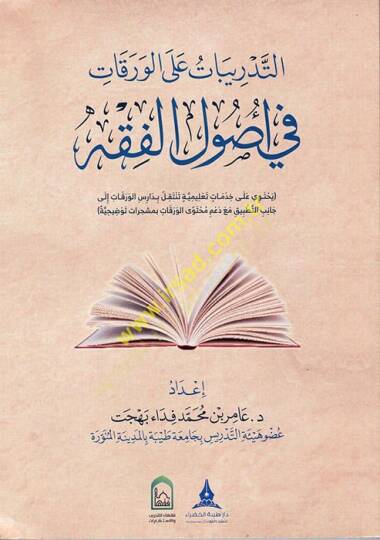 التَّدْرِيبَاتُ عَلَى الوَرَقَاتِ
فِي أُصُولِ الفِقْهِ
(يَحْتَوِي عَلَى خِدْمَاتٍ تَعْلِيمِيَّةٍ تَنْتَقِلُ بِدَارِسِ الوَرَقَاتِ إِلَى
جَانِبِ التَّطْبِيقِ مَعَ دَعْمِ مُحْتَوَى الوَرَقَاتِ بِمُشَجَّرَاتٍ تَوْضِيحِيَّةٍ)
www.irsad.com.tr
إِعْدَادُ
د. عَامِر بْن مُحَمَّد فِدَاء بَهْجَت
عُضْو هَيْئَةِ التَّدْرِيسِ بِجَامِعَةِ طَيْبَةَ بِالمَدِينَةِ المُنَوَّرَةِ
دار طيبة الخضراء